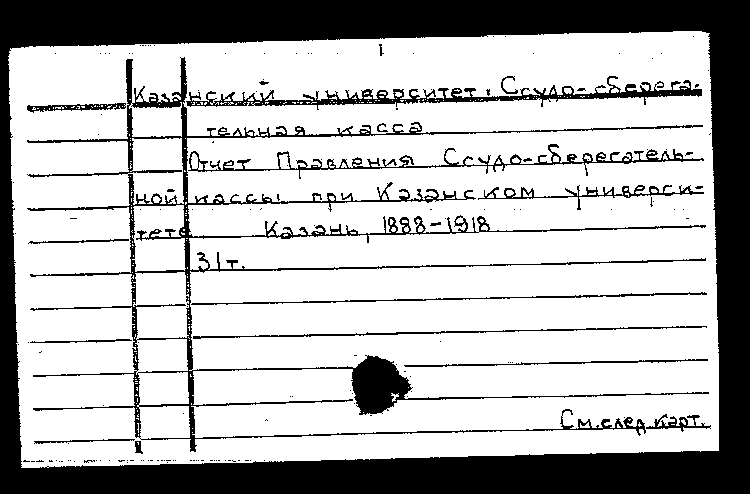 1
Казанский университет. Ссудо-сберега-
тельная касса
Отчет Правления Ссудо-сберегатель-
ной кассы при Казанском универси-
тете. Казань, 1888-1918.
31т.
См.след.карт.